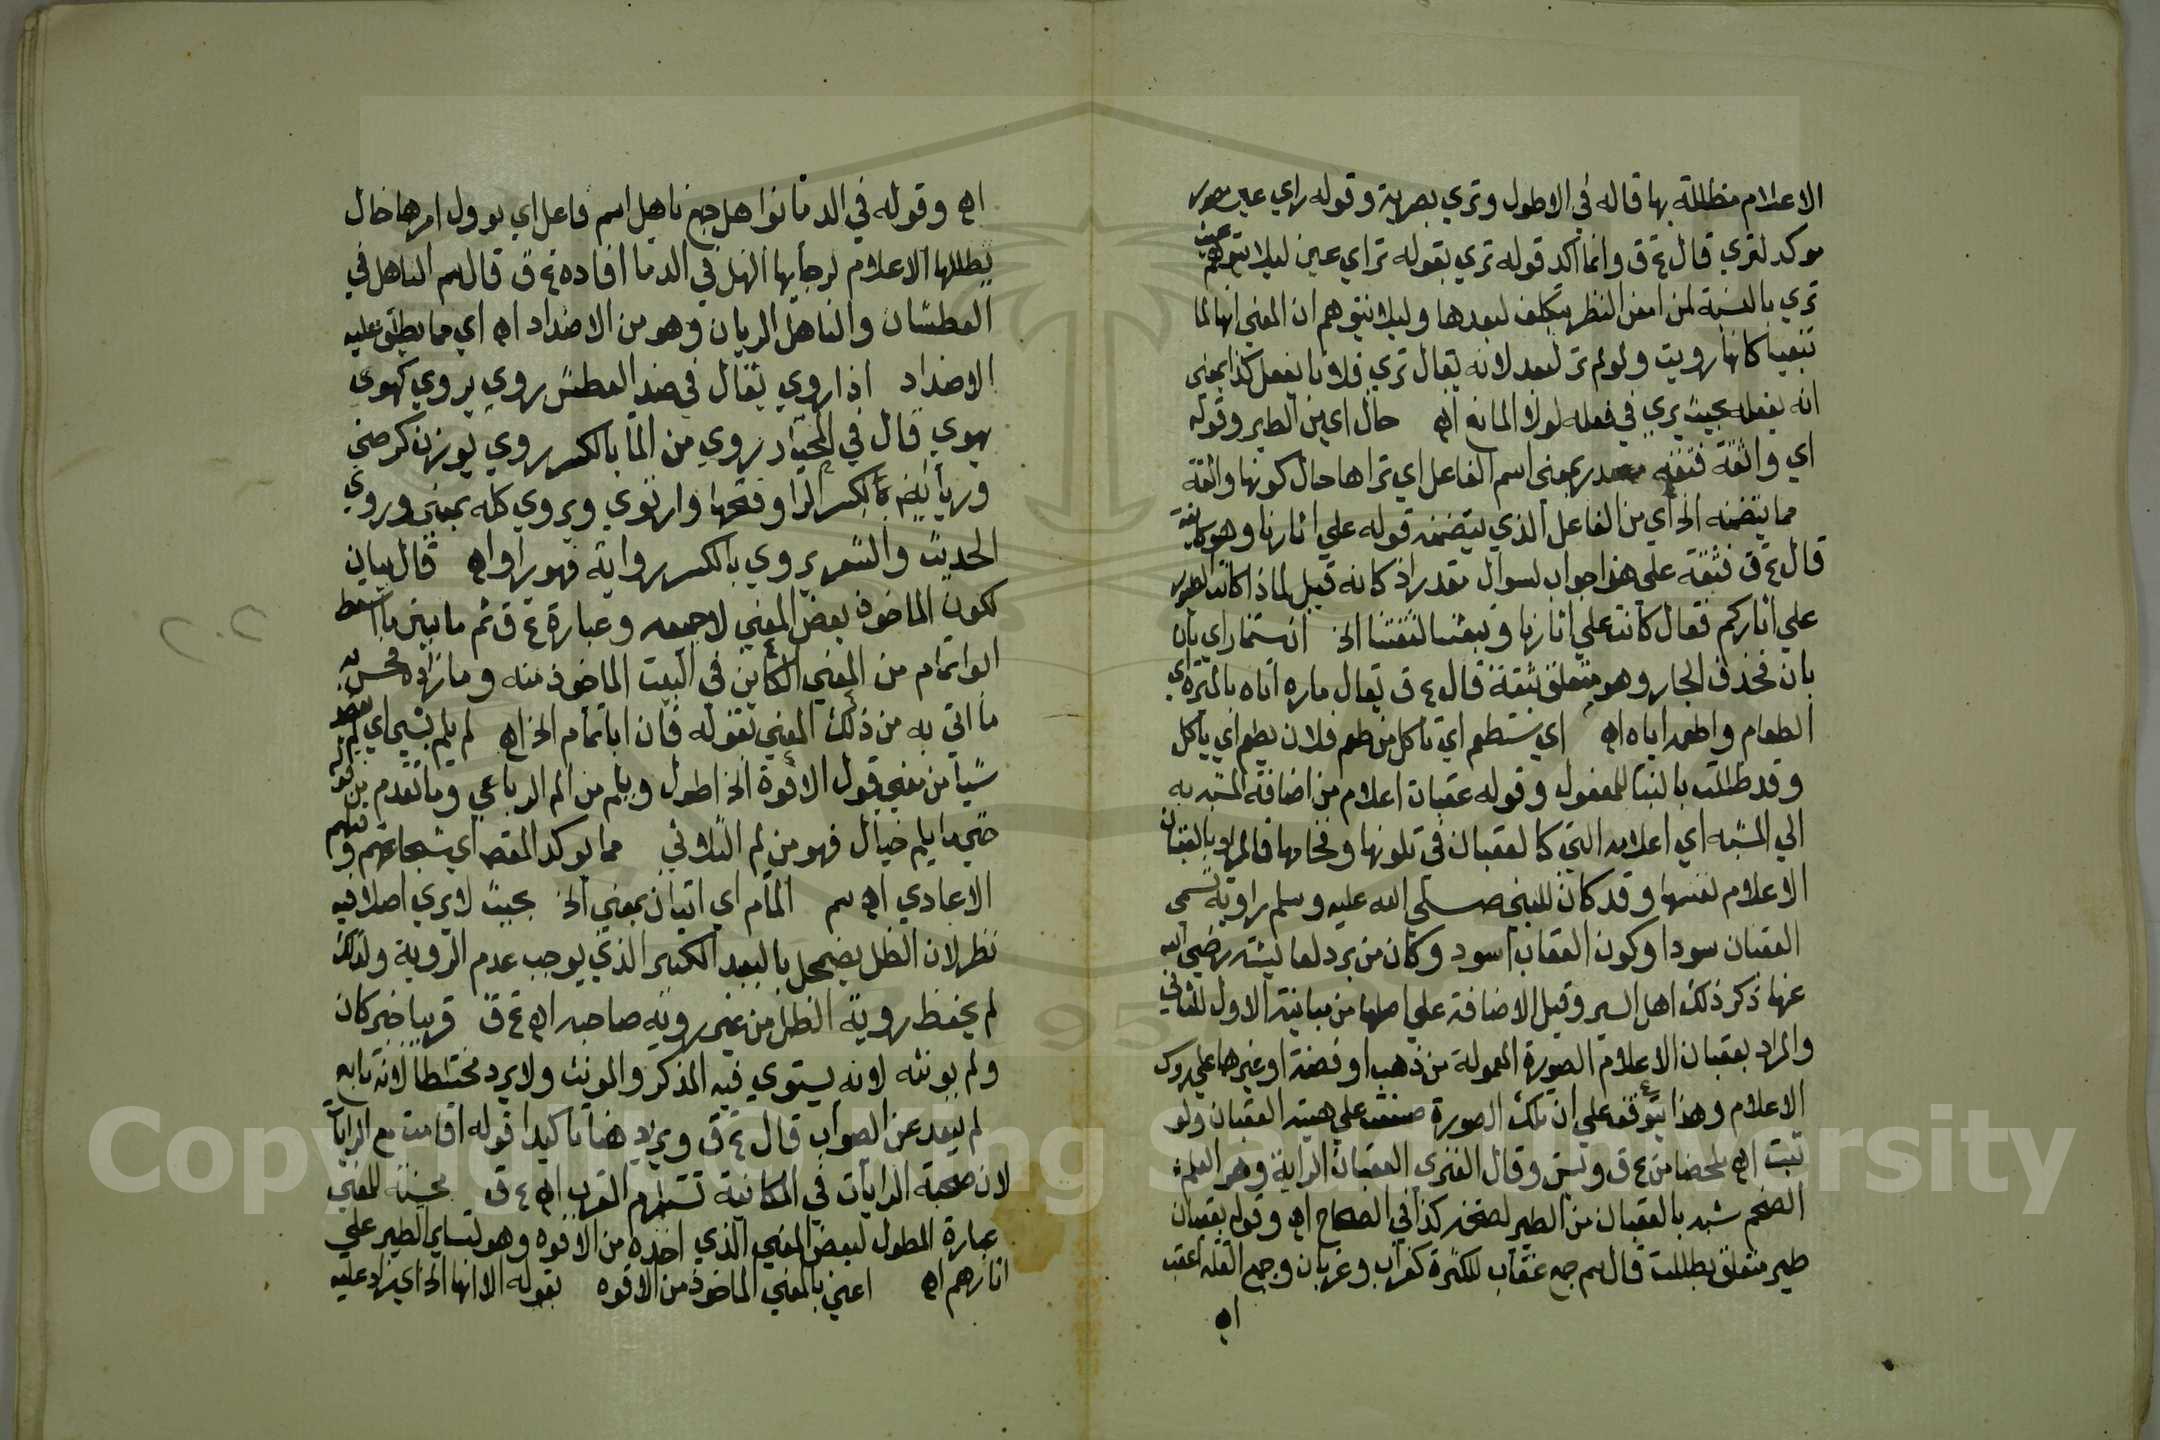 الاعلام مظللة بها قاله في الاطول وتري بصرية وقوله راي عين
موكد لتري قال ع ق وانما اكد قوله تري بقوله تراي عين ليلا يتوهم
تري بالنسبة لمن امعن النظر بتكلف لبعدها وليلا يتوهم ان المعني انها لما
تبعتنا كانها رويت ولو لم تر لبعد لانه يقال تري فلانا يفعل كذا بمعني
انه يفعله بحيث يري في فعله لولا المانع اه حال اي من الطير وقوله
اي واثقة فثقه مصدر بمعني اسم الفاعل اي تراها حال كونها واثقة
مما يتضمنه الخ اي من الفاعل الذي يتضمنه قوله علي اثارنا وهو
قال ع ق فثقة علي هذا جواب لسوال مقدر اذ كانه قيل لماذا كانت الطيور
علي اثاركم فقال كانت علي اثارنا وتبعتنا لثقتنا الخ ان ستمار اي بان
بان فحذف الجار وهو متعلق بثقة قال ع ق يقال ماره اتاه بالميرة اي
الطعام واطعمه اياه اه اي ستطعم اي تاكل من طعم فلان يطعم اي ياكل
وقد ظللت بالبنا للمفعول وقوله عقبان اعلام من اضافة المشبه به
الي المشبه اي اعلامه التي كالعقبان في تلونها وفخامتها فالمراد بالعقبان
الاعلام نفسها وقد كان للنبي صلي الله عليه وسلم راوية تسمي
العقبان سودا وكون العقاب اسود وكان من برد لعايشه رضي الله
عنها ذكر ذلك اهل السير وقيل الاضافة علي اصلها من مباينة الاول للثاني
والمراد بعقبان الاعلام الصورة المعمولة من ذهب او فضة او غيرها علي روك
الاعلام وهذا يتوقف علي ان تلك الصورة صنعت علي هيئة العقبان ولو
ثبت اه ملخصا من ع ق ويس وقال الفنري العقبان الراية وهو العلم
الضخم شبه بالعقبان من الطير لضخمه كذا في الصحاح اه وقوله بعقبان
طير متعلق بظللت قال سم جمع عقاب للكثرة كغراب وغربان وجمع القلة اعقب
اه
اه وقوله في الدما نواهل جمع ناهل اسم فاعل اي يوول امرها حال
تظللها الاعلام لرجايها النهل في الدما افاده ع ق قال سم الناهل في
العطشان والناهل الريان وهو من الاضداد اه اي مما يطلق عليه
الاضداد اذا روي يقال في ضد العطش روي يروي كهوي
يهوي قال في المختار روي من الما بالكسر روي بوزن رضي
وريا ايضا بكسر الرا وفتحها وارتوي ويروي كله بمعني وروي
الحديث والشعر يروي بالكسر رواية فهو راو اه قال بيان
لكون الماخوذ بعض المعني لا جميعه وعبارة ع ق ثم ما بين ما اسقط
ابو اتمام من المعني الكاين في البيت الماخوذ منه وما زاده محسن به
ما اتي به من ذلك المعني بقوله فان ابا تمام الخ اه لم يلم بشي اي لم
شيا من معني قول الافوة الخ اطول ويلم من الم الرباعي وما تقدم من
حتي ما يلم خيال فهو من لم الثلاثي مما يوكد المقصد اي شجاعتهم
الاعادي اه سم المام اي اتيان بمعني الخ بحيث لا يري اصلا فيه
نظر لان الظل يضمحل بالبعد الكثير الذي يوجب عدم الروية ولذلك
لم يحفظ روية الظل من غير روية صاحبه اه ع ق قريبا خبر كان
ولم يونثه لانه يستوي فيه المذكر والمونث ولا يرد مختلطا لانه تابع
لم يبعد عن الصواب قال ع ق ويزيد هنا تاكيدا قوله اقامت مع الرايات
لان صحبة الرايات في المكانية تستلزم القرب اه ع ق محسنة للمعني
عبارة المطول لبعض المعني الذي اخذه من الافوه وهو تساير الطير علي
اثارهم اه اعني بالمعني الماخوذ من الافوه بقوله الا انها الخ اي زاد عليه